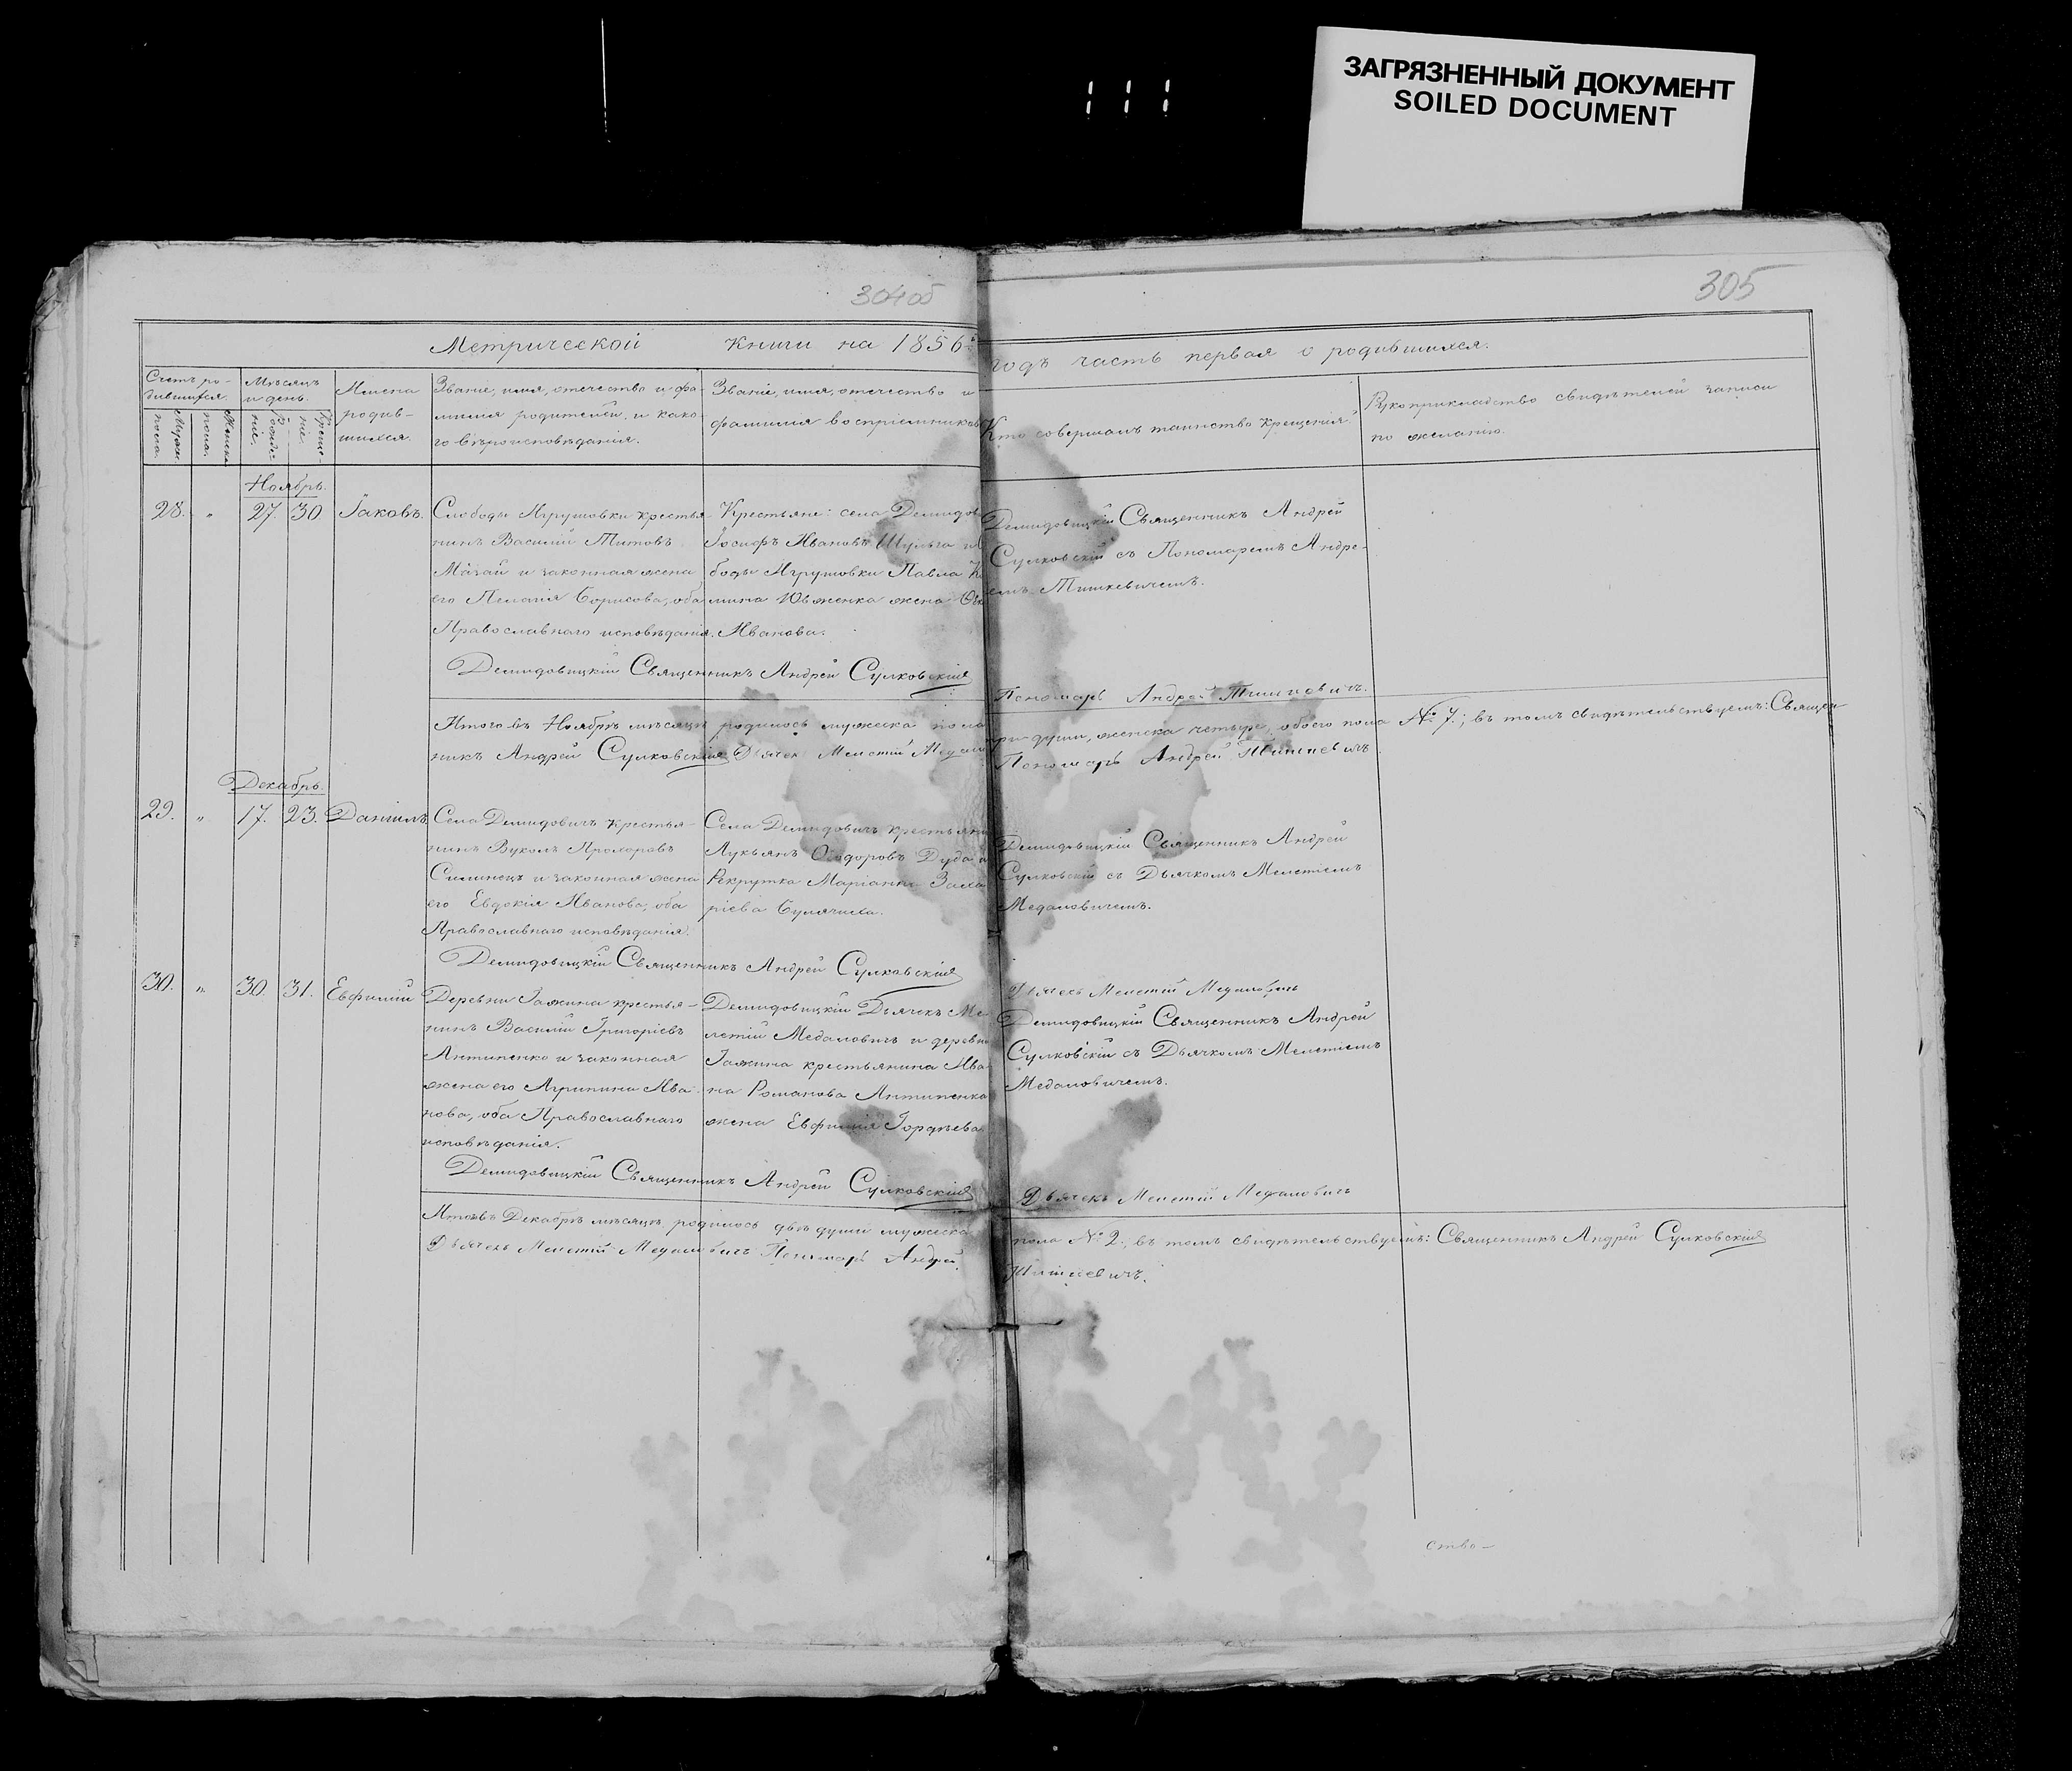 ЗАГРЯЗНЕННЫЙ ДОКУМЕНТ
SOILED DOCUMENT
304об
305
Метрической Книги на 1856й
годъ часть первая о родившихся.
Счетъ ро-
дившихся.
Мужеска
пола.
Женска
пола.
Мѣсяцъ
и день.
Рожде-
нiе.
Креще-
нiе.
Имена
родив-
шихся.
Званiе, имя, отечество и фа-
милiя родителей, и како-
го вѣроисповѣданiя.
Званiе, имя, отечество и
фамилiя воспрiемниковъ
Кто совершалъ таинство крещенiя.
Рукоприкладство свидѣтелей записи
по желанiю.
Ноябрь.
28. „ 27. 30 Iаковъ.
Слободы Мрушовки крестья-
нинъ Василiй Титовъ
и законная жена
его Пелагiя Борисова, оба
Православнаго исповѣданiя.
Крестьяне: села Демидов
Iосифъ Ивановъ Шульга и
боды Мрушовки Павла
жена
Иванова.
Демидовицкiй Священникъ Андрей
Сулковскiй съ Пономаремъ Андре-
емъ Тишкевичемъ.
Демидовицкiй Священникъ Андрей Сулковскiй
Пономарь Андрей Тишкевичъ.
Итого въ Ноябрѣ мѣсяцѣ родилось мужеска пола
три души, женска четыре, обоего пола № 7.; въ томъ свидѣтельствуемъ: Священ-
никъ Андрей Сулковскiй Дьячекъ Мелетiй
Пономарь Андрей Тишкевичъ
Декабрь.
29. „ 17. 23. Данiилъ.
Села Демидовичъ крестья-
нинъ Вуколъ Прохоровъ
Силинецъ и законная жена
его Евдокiя Иванова, оба
Православнаго исповѣданiя.
Села Демидовичъ крестьянин
Лукьянъ Ѳеодоровъ Дуда и
Рекрутка Марiанна Заха-
рiева
Демидовицкiй Священникъ Андрей
Сулковскiй съ Дьячкомъ Мелетiемъ
Медаловичемъ.
Демидовицкiй Священникъ Андрей Сулковскiй
Дьячекъ Мелетiй Медаловичъ
30. „ 30. 31. Евфимiй
Деревни Гажина крестья-
нинъ Василiй Григорiевъ
Антипенко и законная
жена его Агрипина Ива-
нова, оба Православнаго
исповѣданiя.
Демидовицкiй Дьячекъ Ме-
летiй Медаловичъ и деревни
Гажина крестьянина Ива-
на Романова Антипенка
жена Евфимiя Гордѣева.
Демидовицкiй Священникъ Андрей
Сулковскiй съ Дьячкомъ Мелетiемъ
Медаловичемъ.
Демидовицкiй Священникъ Андрей Сулковскiй
Дьячекъ Мелетiй Медаловичъ
Итого въ Декабрѣ мѣсяцѣ родилось двѣ души мужеска
пола № 2., въ томъ свидѣтельствуемъ: Священникъ Андрей Сулковскiй
Дьячекъ Мелетiй Медаловичъ Пономарь Андрей
Тишкевичъ.
ство-